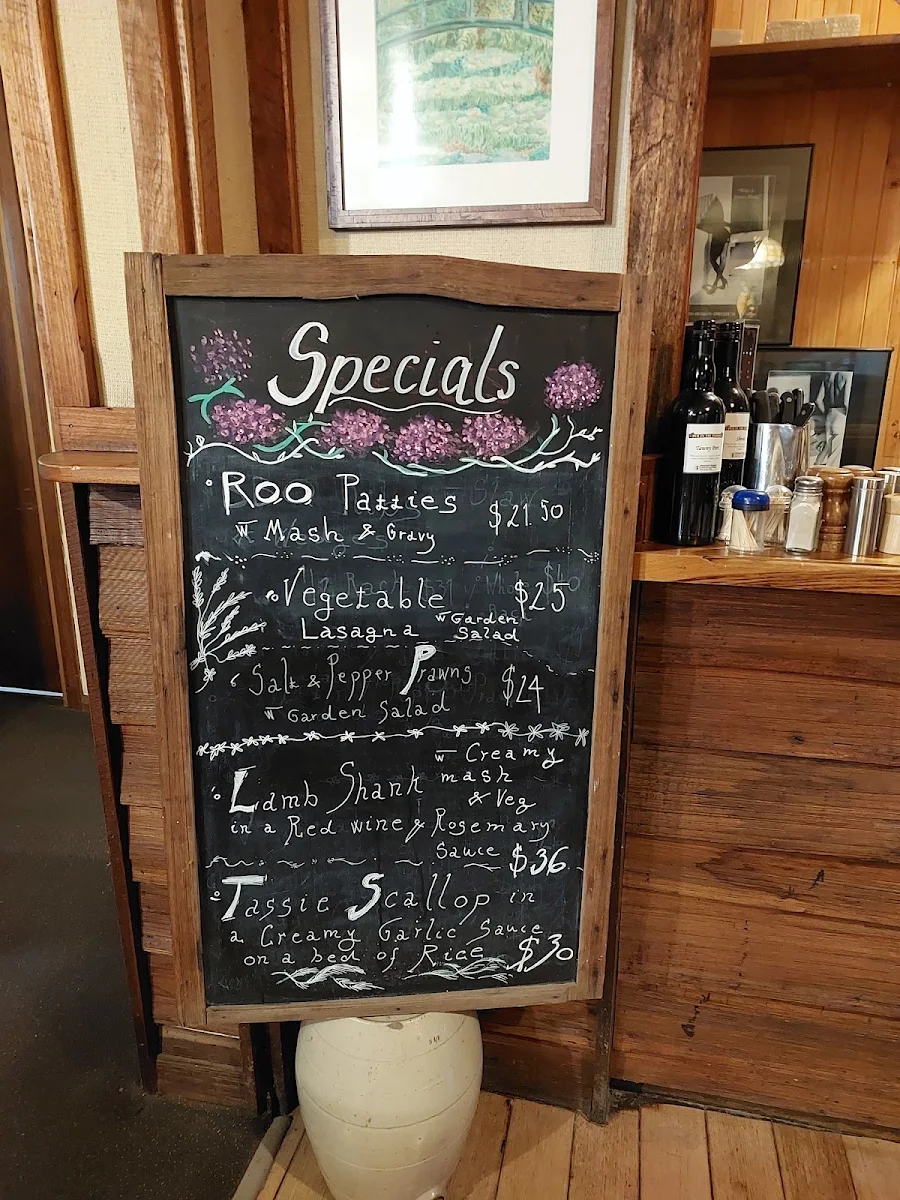 Specials
Roo Patties $21.50
w Mash & Gravy
Vegetable $25
Lasagna w Garden Salad
Salt & Pepper Prawns $24
w Garden Salad
Lamb Shank w Creamy mash & Veg
in a Red wine & Rosemary
Sauce $36
Tassie Scallop in
a Creamy Garlic Sauce
on a bed of Rice $30